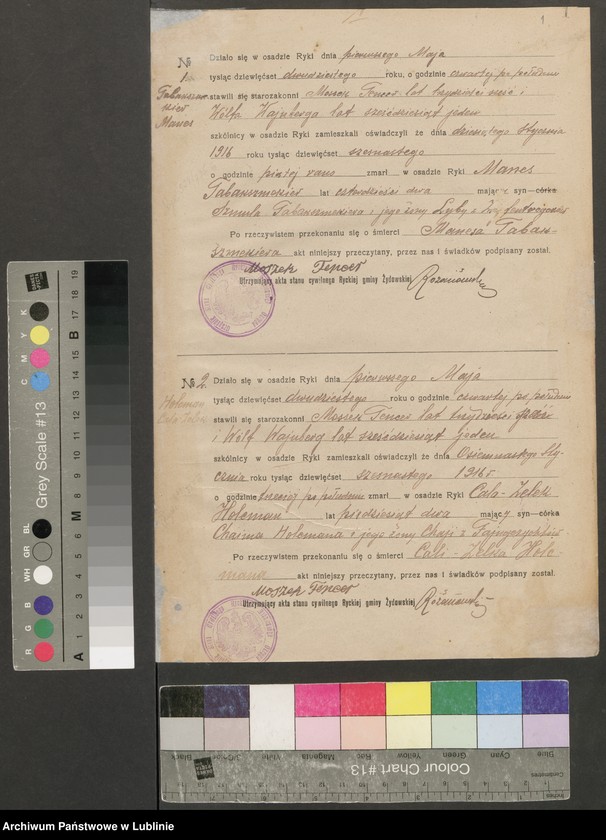 1
№ 1.
Działo się w osadzie Ryki dnia pierwszego Maja
tysiąc dziewięćset dwudziestego roku, o godzinie czwartej po południu
stawili się starozakonni Moszek Tencer lat trzydzieści sześć i
Wólf Wajnberg lat sześćdziesiąt jeden
szkólnicy w osadzie Ryki zamieszkali oświadczyli że dnia dziesiątego Stycznia
1916 roku tysiąc dziewięćset szesnastego
o godzinie piątej rano zmarł w osadzie Ryki Manes
lat czterdzieści dwa mający syn córka
Szmula i jego żony Łyby z
Po rzeczywistem przekonaniu się o śmierci Manesa Taban-
akt niniejszy przeczytany, przez nas i świadków podpisany został.
Moszek Tencer
Utrzymujący akta stanu cywilnego Ryckiej gminy Żydowskiej
№ 2.
Holcman
Cala Zelek
Działo się w osadzie Ryki dnia pierwszego Maja
tysiąc dziewięćset dwudziestego roku o godzinie czwartej po południu
stawili się starozakonni Moszek Tencer lat trzydzieści sześć
i Wólf Wajnberg lat sześćdziesiąt jeden
szkólnicy w osadzie Ryki zamieszkali oświadczyli że dnia Osiemnastego Sty-
cznia roku tysiąc dziewięćset szesnastego 1916 r
o godzinie trzeciej po południu zmarł w osadzie Ryki Cala-Zelek
Holcman lat pięćdziesiąt dwa mający syn córka
Chaima Holcmana i jego żony Chaji z
Po rzeczywistem przekonaniu się o śmierci Cali-Zelka Holc-
mana akt niniejszy przeczytany, przez nas i świadków podpisany został.
Moszek Tencer
Utrzymujący akta stanu cywilnego Ryckiej gminy Żydowskiej
Grey Scale #13
C M Y K
R G B WH GR BL
A 1 2 3 4 5 6 M 8 9 10 11 12 13 14 15 B 17 18 19
Black White Magenta Red Yellow Green Cyan Blue
Colour Chart #13
Archiwum Państwowe w Lublinie